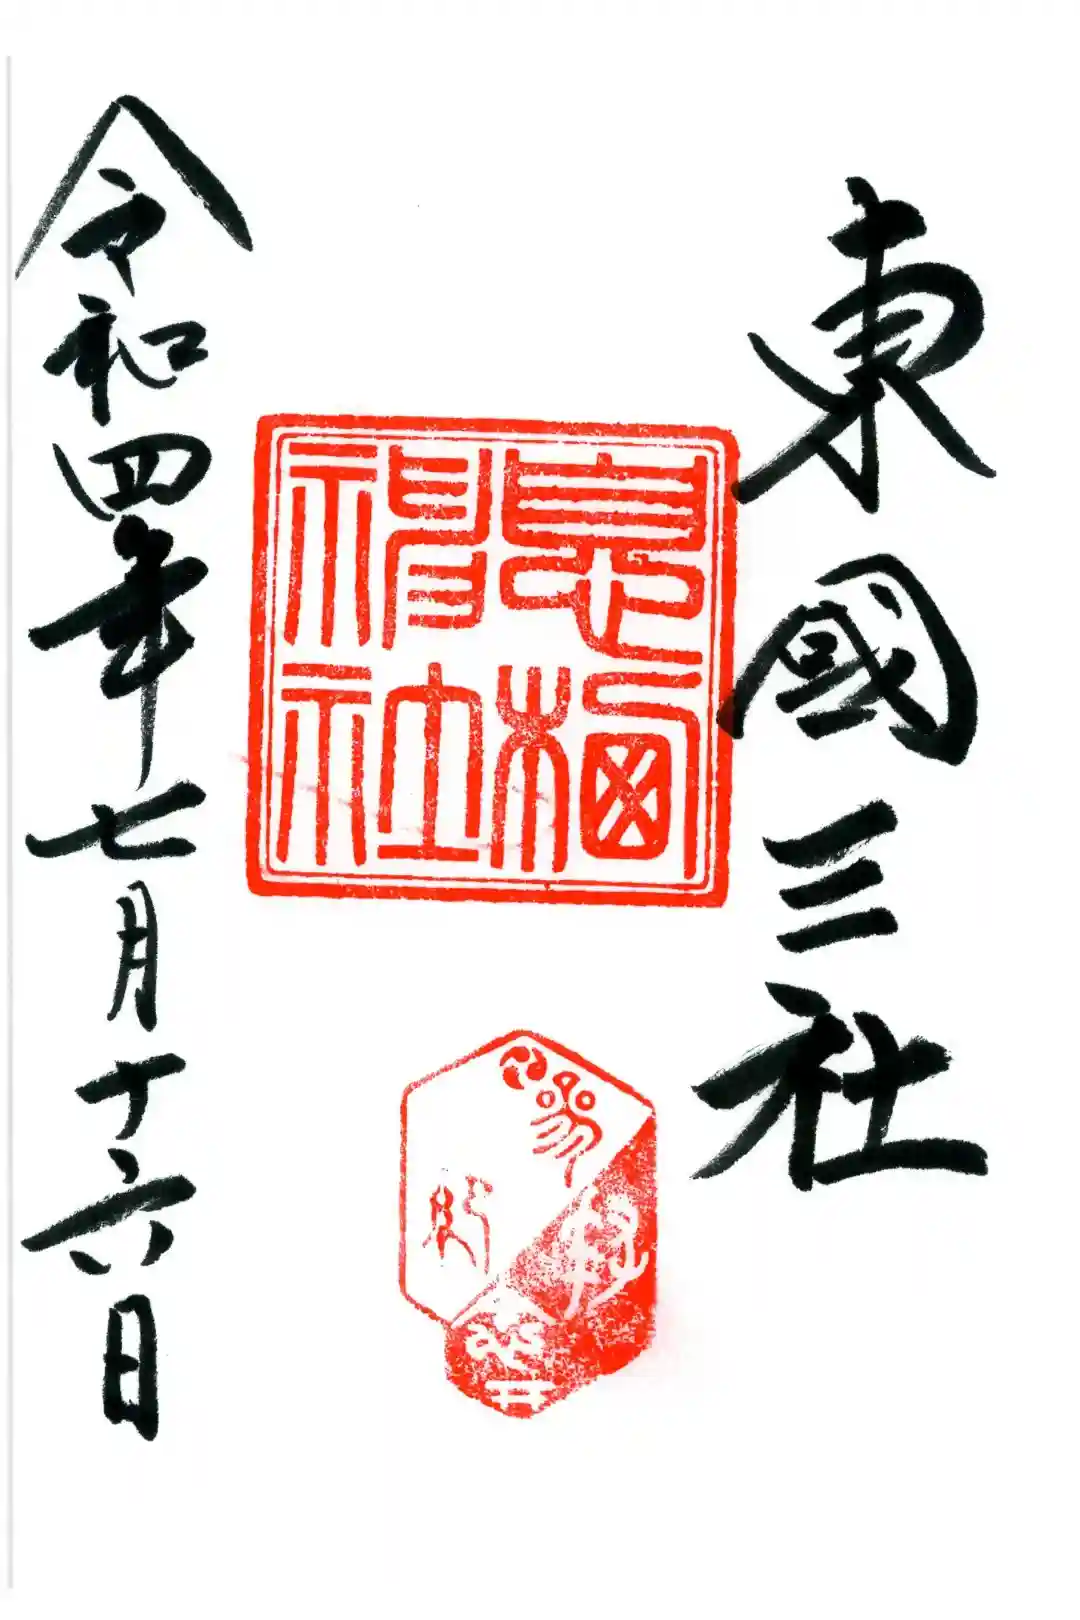 東國三社
息栖神社
令和四年七月十六日